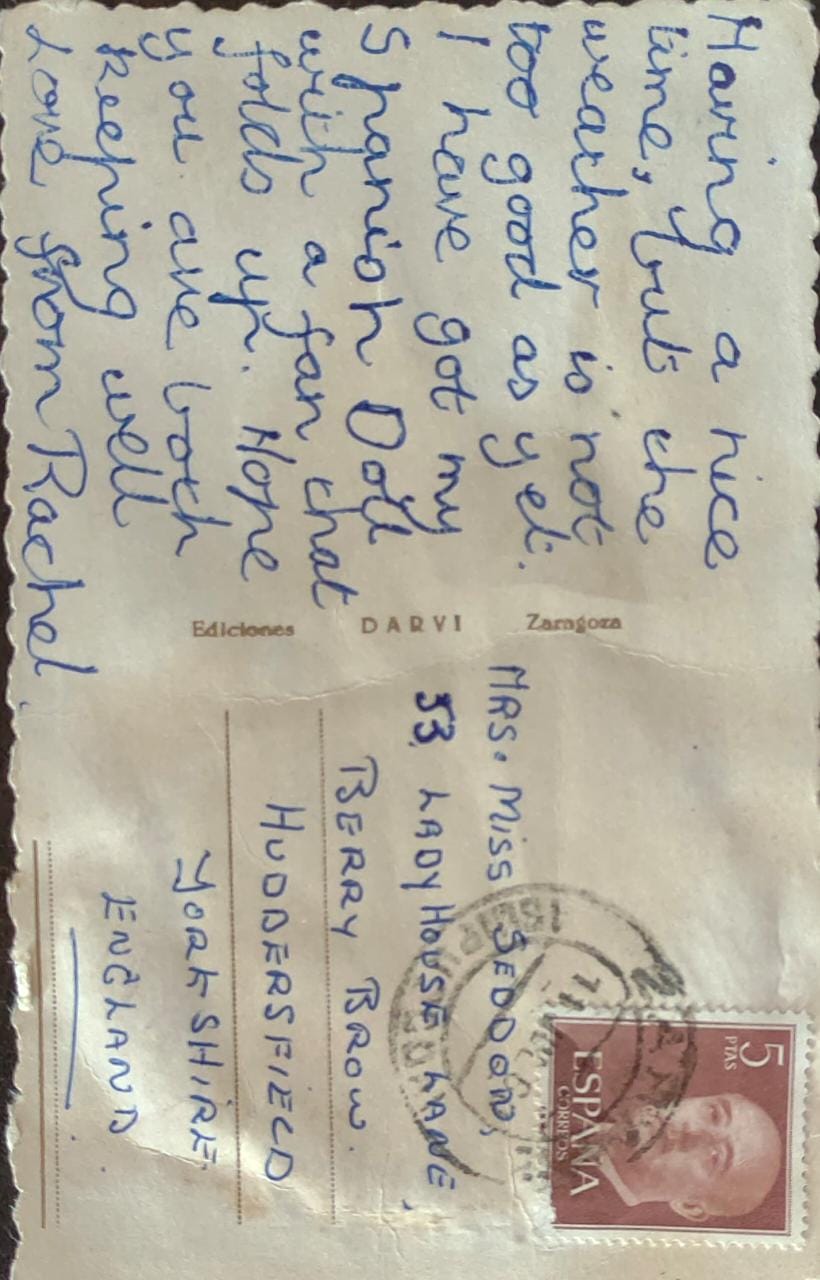 Having a nice
time, but the
weather is not
too good as yet.
I have got my
Spanish Doll
with a fan that
folds up. Hope
you are both
keeping well
Love from Rachel.
Ediciones DARVI Zaragoza
5
PTAS
ESPAÑA
CORREOS
MRS. MISS SEDDON,
53, LADY HOUSE LANE,
BERRY BROW.
HUDDERSFIELD
YORKSHIRE
ENGLAND